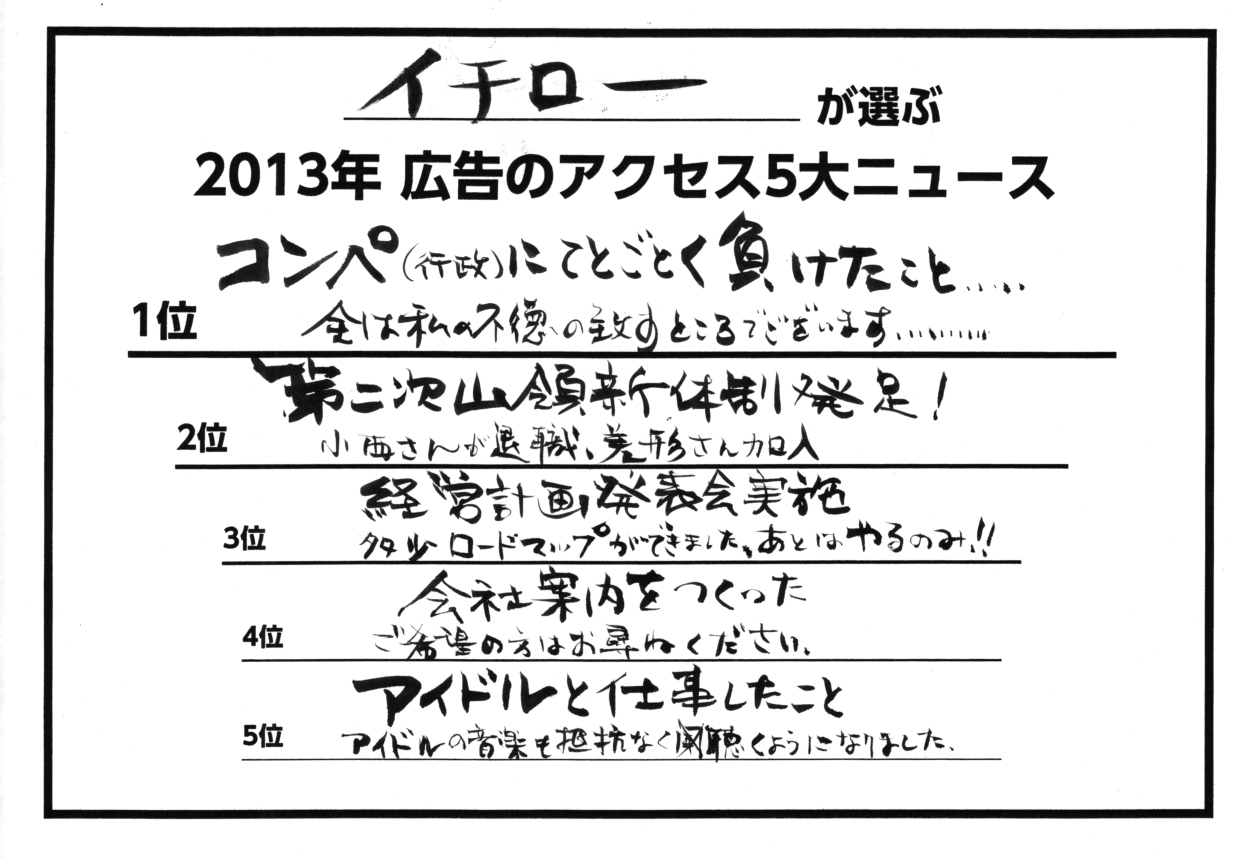 イチロー が選ぶ
2013年 広告のアクセス5大ニュース
コンペ(行政)にことごとく負けたこと.....
1位 全は私の不徳の致すところでございます..........
第二次山領新体制発足!
2位 小西さんが退職、さん加入
経営計画発表会実施
3位 多少ロードマップができました。あとはやるのみ!!
会社案内をつくった
4位 ご希望の方はお尋ねください。
アイドルと仕事したこと
5位 アイドルの音楽も抵抗なく聴くようになりました。